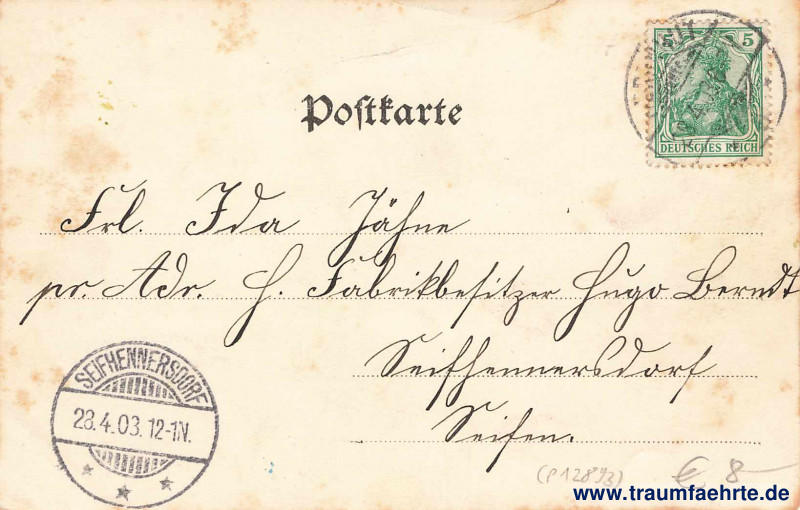 5 5
DEUTSCHES REICH
Postkarte
Frl. Ida Jähne
pr. Adr. H. Fabrikbesitzer Hugo Berndt
Seifhennersdorf
Seifen.
SEIFHENNERSDORF
28.4.03. 12-1N.
(P12893)
€ 8-
www.traumfaehrte.de